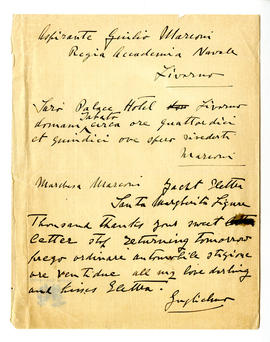 Aspirante Giulio Marconi
Regia Accademia Navale
Livorno
Sarò Palace Hotel Livorno
domani sabato circa ore quattordici
et quindici ove spero rivederti
Marconi
Marchesa Marconi Yacht Elettra
Santa Margherita Ligure
Thousand thanks your sweet
letter stop returning tomorrow
prego ordinare automobile stazione
ore ventidue all my love darling
and kisses Elettra.
Guglielmo